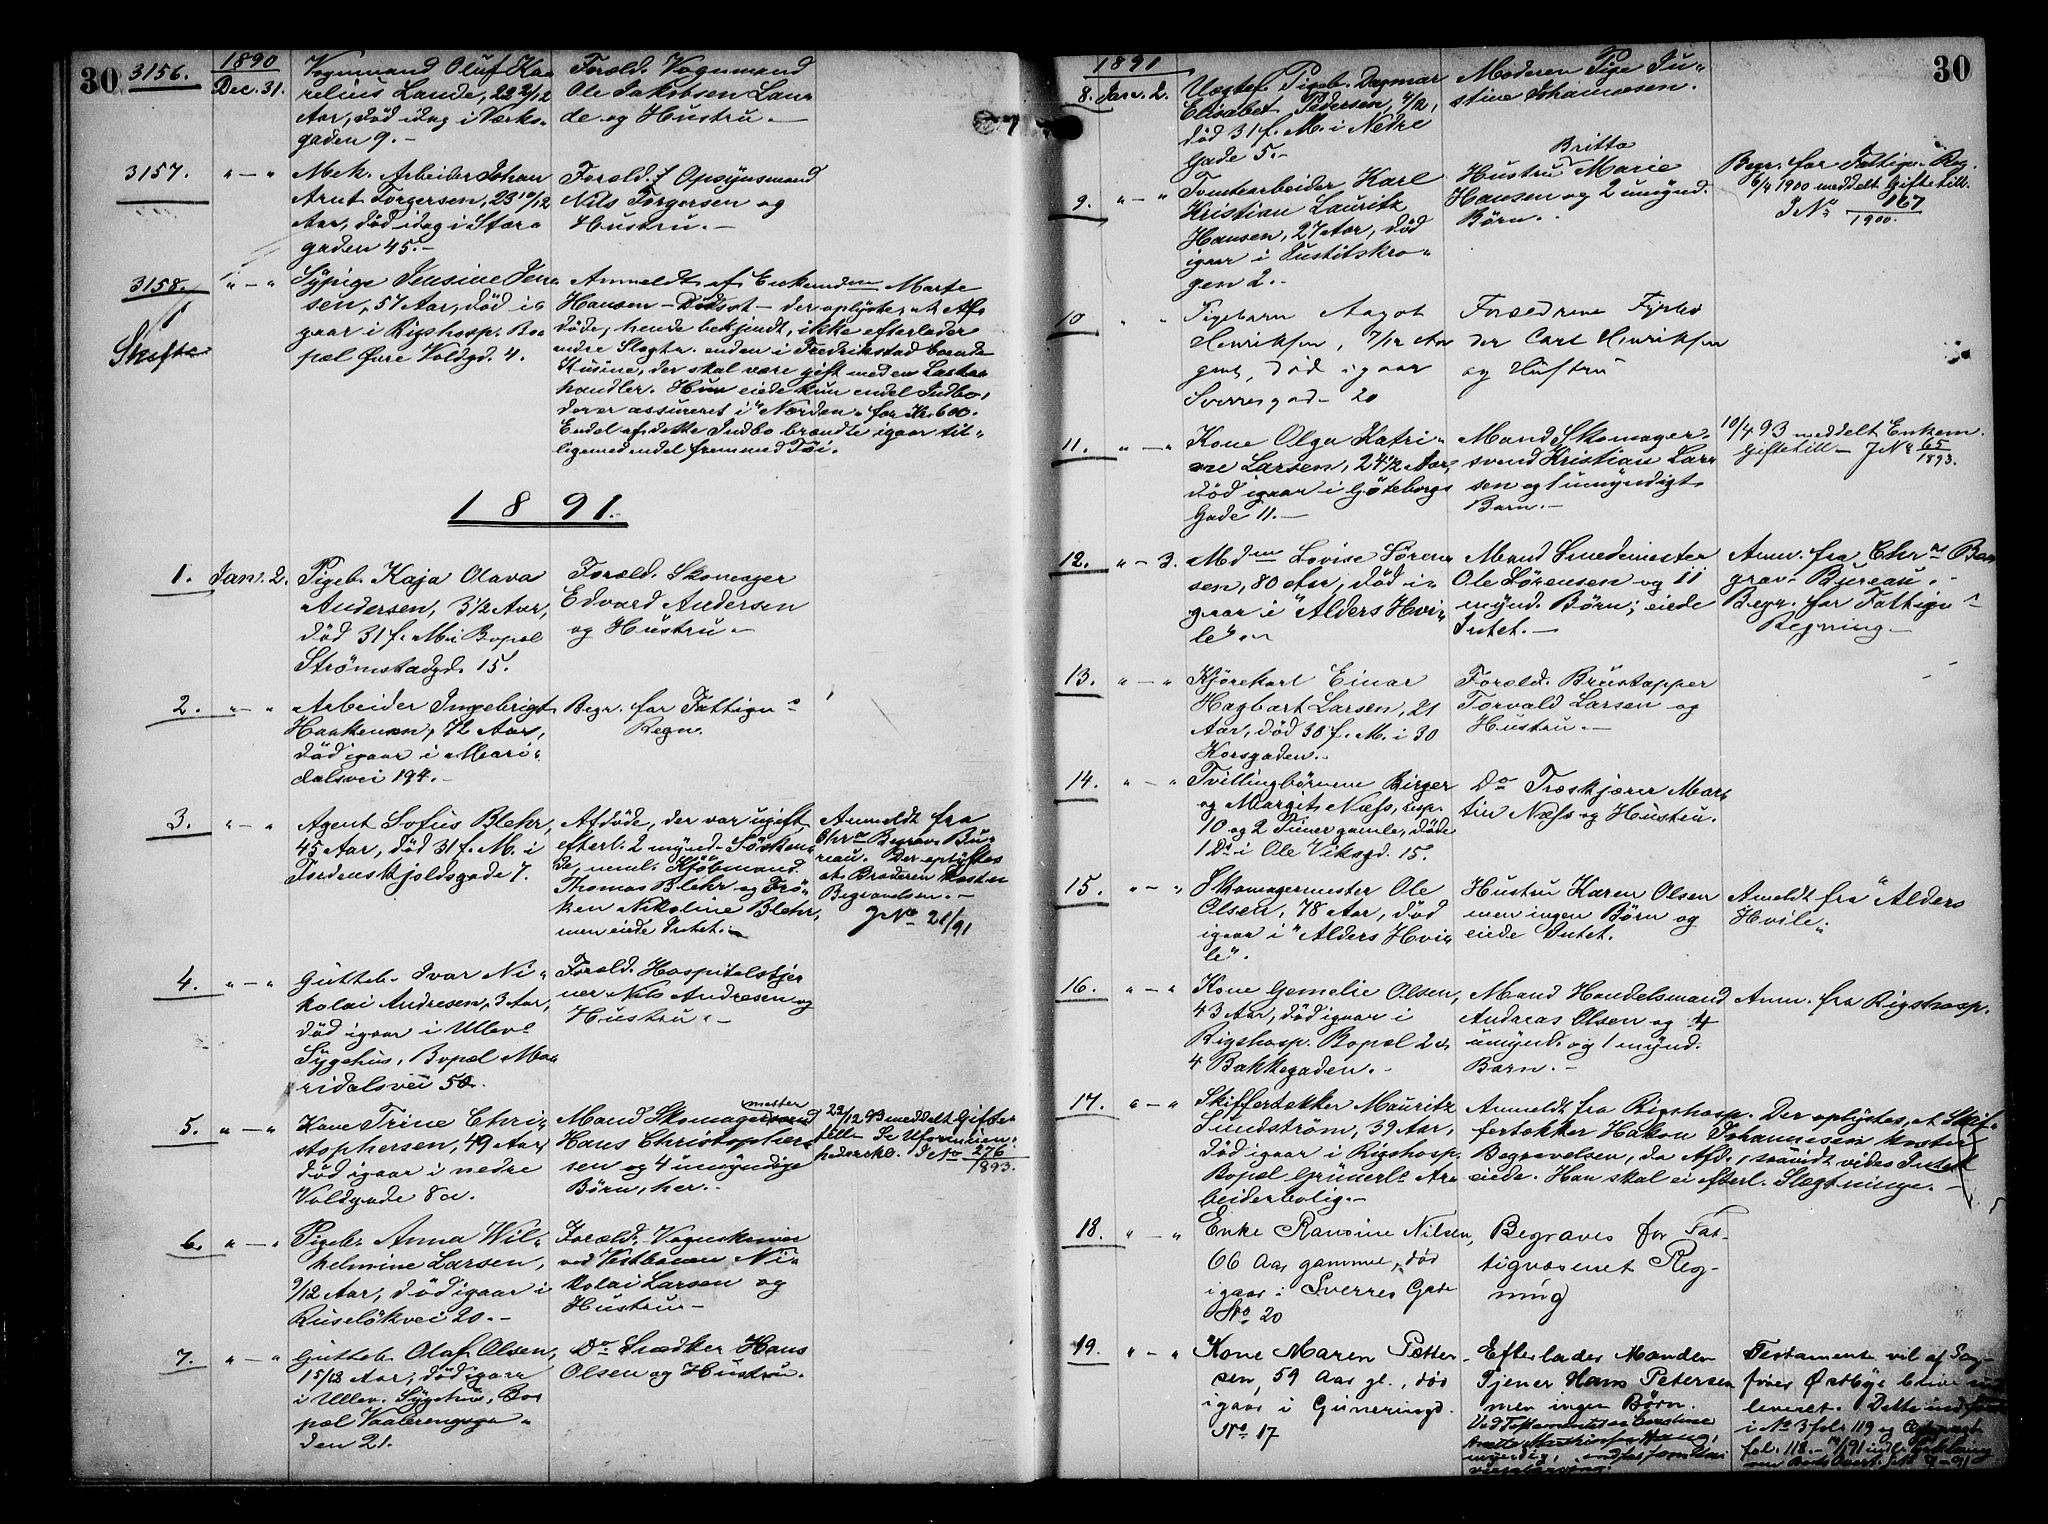 30
3156.
1890
Dec. 31.
Vognmand Oluf Ka-
relius Lande, 22 2/12
Aar, død idag i Værks-
gaden 9.-
Foræld. Vognmand
Ole Jakobsen Lan-
de og Hustru.-
3157.
" - "
Mek. Arbeider Johan
Arnt Torgersen, 23 10/12
Aar, død idag i Stor-
gaden 45.-
Foræld. f Opsynsmand
Nils Torgersen og
Hustru.-
3158.
Skifte
" - "
Sypige Jensine Jen-
sen, 57 Aar, død i-
gaar i Rigshosp. Bo-
pæl Øvre Voldgd. 4.
Anmeldt af Enkemdm Marte
Hansen - Dødsat - der oplyste, at Af-
døde, hende bekjendt, ikke efterlader
andre Slægtn. enden i Fredrikstad boende
Kusine, der skal være gift med en Læder-
handler. Hun eiede kun endel Indbo,
der er assureret i "Norden" for Kr. 600.
Endel af dette Indbo brændte igaar til-
ligemed endel fremmed Tøi.
1891.
1.
Jan. 2.
Pigeb. Kaja Olava
Andersen, 3 1/2 Aar,
død 31 f. M. i Bopæl
Strømstadgd. 15.
Foræld. Skomager
Edvard Andersen
og Hustru.-
2.
" - "
Arbeider Ingebrigt
Haakensen, 72 Aar,
død igaar i Mari-
dalsvei 194.-
Begr. for Fattigv s
Regn.
3.
" - "
Agent Sofus Blehr,
45 Aar, død 31 f. M. i
Tordenskjoldsgade 7.
Afdøde, der var ugift,
efterl. 2 mynd. Søsken-
de, neml. Kjøbmand
Thomas Blehr og Frø-
ken Nikoline Blehr,
men eiede Intet.-
Anmeldt fra
Chr a Begrav. Bu-
reau. Der oplystes
at Broderen koster
Begravelsen.-
J No 21/91
4.
" - "
Gutteb. Ivar Ni-
kolai Andresen, 3 Aar,
død igaar i Ullev.
Sygehus, Bopæl Ma-
ridalsvei 50.
Foræld. Hospitalstje-
ner Nils Andresen og
Hustru.-
5.
" - "
Kone Trine Chri-
stophersen, 49 Aar,
død igaar i nedre
Voldgade 8a.
mester
Mand Skomagersvend
Hans Christopher-
sen og 4 umyndige
Børn, her.-
22/12 93 meddelt Gifte-
till. Se Uformuen-
hedserkl. J No 276
1893.
6.
" - "
Pigeb. Anna Wil-
helmine Larsen,
9/12 Aar, død igaar i
Ruseløkvei 20.-
Foræld. Vognskriver
ved Vestbanen Ni-
kolai Larsen og
Hustru.-
7.
" - "
Gutteb. Olaf Olsen,
1 5/12 Aar, død igaar
i Ullev. Sygehus, Bo-
pæl Vaalerengsga-
den 21.
Do Snedker Hans
Olsen og Hustru.
30
1891
8.
Jan. 2.
Uægtef. Pigeb. Dagmar
Elisabet Pedersen, 4/12,
død 31 f. M. i Nedre
Gade 5.-
Moderen Pige Ju-
stine Johannesen.
9.
" - "
Tomtearbeider Karl
Kristian Lauritz
Hansen, 27 Aar, død
igaar i Justitskro-
gen 2.-
Britta
Hustru Marie
Hansen og 2 umynd.
Børn.
Begr. for Fattigv. s Reg.
6/4 1900 meddelt Giftetill.
J No 167
1900.
10
" "
Pigebarn Aagot
Henriksen, 7/12 Aar
gml, død igaar
Sverresgad- 20
Forældrene Fyrbø-
der Carl Henriksen
og Hustru
11.
" - "
Kone Olga Katri-
ne Larsen, 24 1/2 Aar,
død igaar i Gøteborgs
Gade 11.-
Mand Skomager-
svend Kristian Lar-
sen og 1 umyndigt
Barn.-
10/4 93 meddelt Enkem.
Giftetill- J No 65
1893.
12.
" - 3.
Mdm Lovise Søren-
sen, 80 Aar, død i-
gaar i "Alders Hvi-
le".-
Mand Smedemester
Ole Sørensen og 11
mynd. Børn; eiede
Intet.-
Anm. fra Chr as Be-
grav. Bureau.-
Begr. for Fattigv s
Regning.-
13.
" - "
Kjørekarl Einar
Hagbart Larsen, 21
Aar, død 30 f. M. i 30
Korsgaden.-
Foræld. Brustapper
Torvald Larsen og
Hustru.-
14.
" - "
Tvillingbørnene Birger
og Margit Næss, resp.
10 og 2 Timer gamle, døde
1 Ds i Ole Viksgd. 15.
Do Træskjærer Mar-
tin Næss og Hustru.
15.
" - "
Skomagermester Ole
Olsen, 78 Aar, død
igaar i "Alders Hvi-
le".
Hustru Karen Olsen
men ingen Børn og
eiede Intet.
Anmeldt fra "Alders
Hvile".
16.
" - "
Kone Gemelie Olsen,
43 Aar, død igaar i
Rigshosp. Bopæl 2 &
4 Bakkegaden.-
Mand Handelsmand
Andreas Olsen og 4
umynd. og 1 mynd.
Barn.-
Anm. fra Rigshosp.
17.
" - "
Skiffertækker Mauritz
Sundstrøm, 39 Aar,
død igaar i Rigshosp.
Bopæl Grünerl. Ar-
beiderbolig.-
Anmeldt fra Rigshosp. Der oplystes, at Skif-
fertækker Håkon Johannesen koster
Begravelsen, da Afd., saavidt vides Intet
eiede. Han skal ei efterl. Slægtninge.-
18.
" - "
Enke Ransine Nilsen,
66 Aar gammel, død
igaar i Sverres Gade
No 20
Begraves for Fat-
tigvæsenet Reg-
ning
19.
" - "
Kone Maren Petter-
sen, 59 Aar gl., død
igaar i Guneriusgd.
No 17
Efterlader Manden
Tjener Hans Petersen
men ingen Børn.
Testamente vil af Sag-
fører Østbye blive ind-
leveret. Dette indført
i No 3 fol. 119 og
fol. 118.-